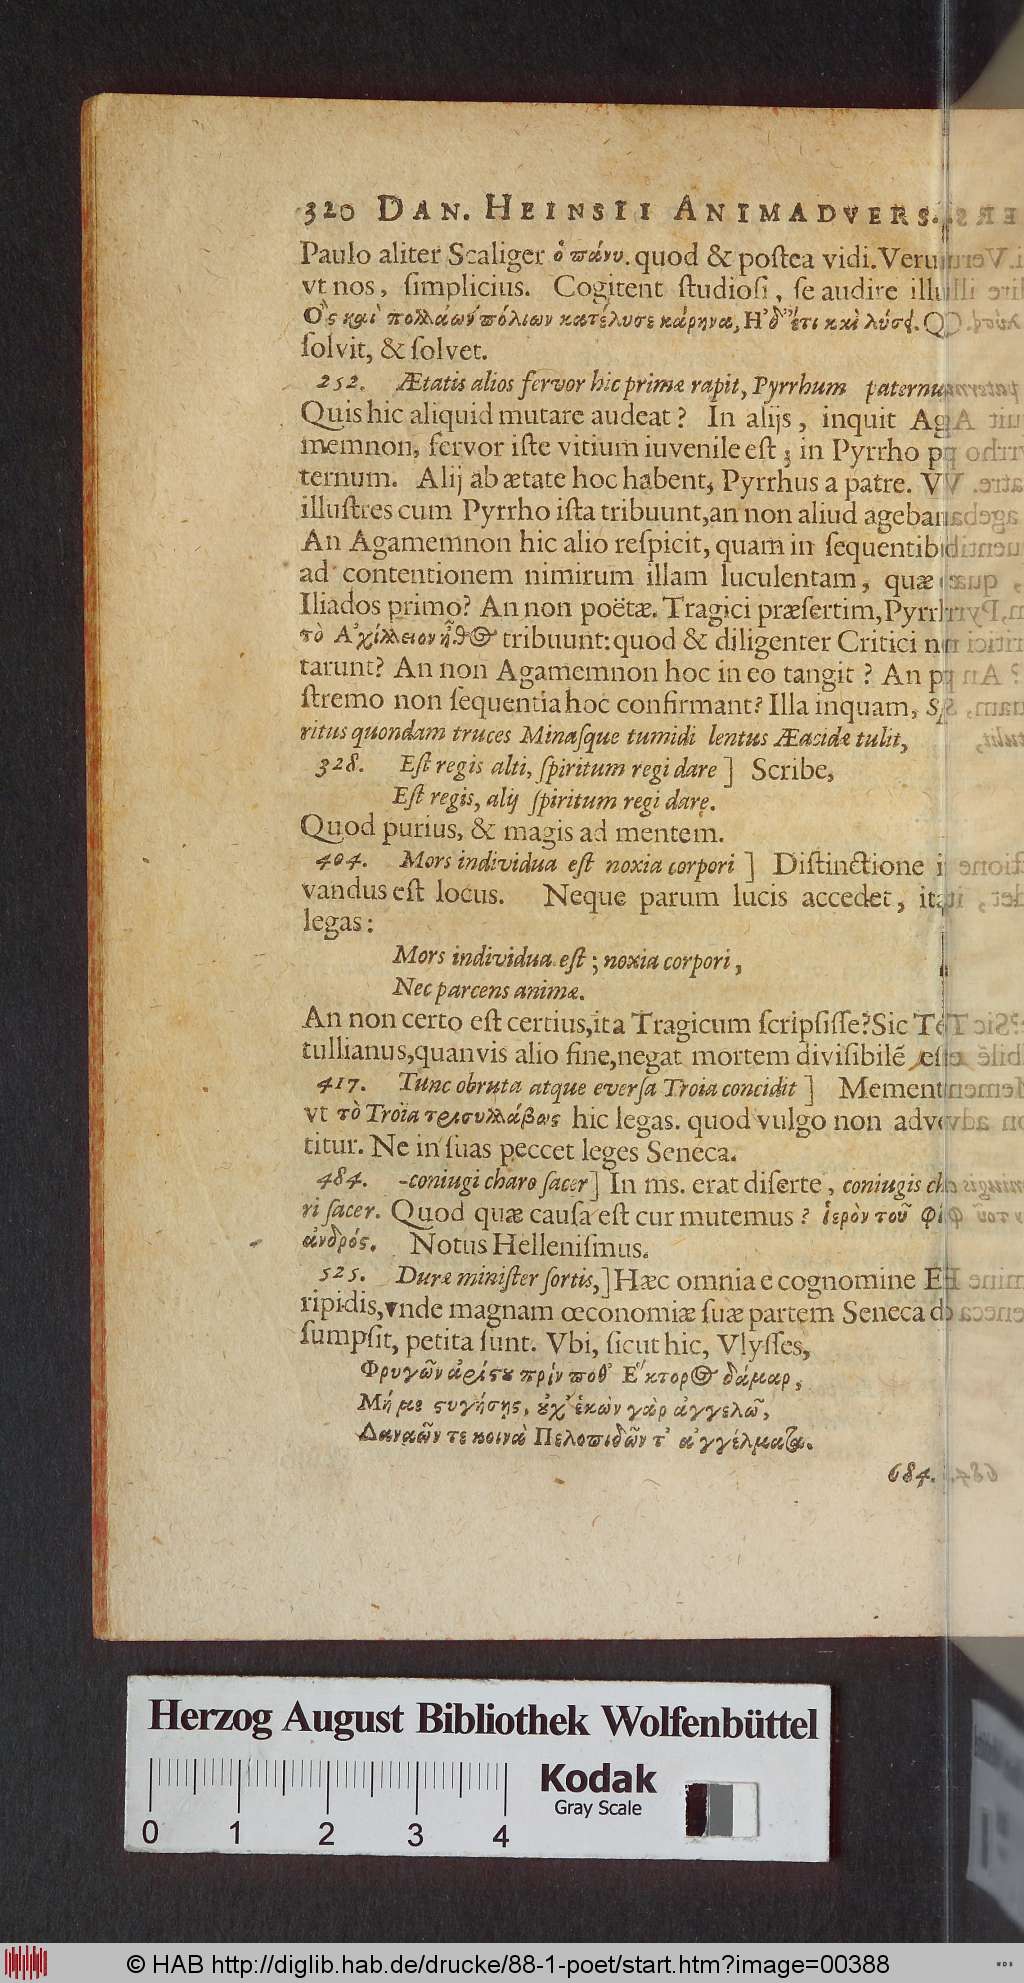 320 DAN. HEINSII ANIMADVERS.
Paulo aliter Scaliger ὁ πάνυ. quod & poſtea vidi. Veru
vt nos, ſimplicius. Cogitent ſtudioſi, ſe audire ill
Ὃς καὶ πολλάων πόλιων κατέλυσε κάρηνα, Ἠδ' ἔτι καὶ λύσϥ. Q
ſolvit, & ſolvet.
252. Ætatis alios fervor hic primæ rapit, Pyrrhum paternu
Quis hic aliquid mutare audeat? In alijs, inquit Ag
memnon, fervor iſte vitium iuvenile eſt; in Pyrrho p
ternum. Alij ab ætate hoc habent, Pyrrhus a patre. V
illuſtres cum Pyrrho iſta tribuunt, an non aliudageban
An Agamemnon hic alio reſpicit, quam in ſequentib
ad contentionem nimirum illam luculentam, quæ
Iliados primo? An non poëtæ. Tragici præſertim, Pyrrh
τὸ Ἀχίλλειον ἦθος tribuunt: quod & diligenter Critici n
tarunt? An non Agamemnon hoc in eo tangit? An p
ſtremo non ſequentia hoc confirmant? Illa inquam, Sp
ritus quondam truces Minaſque tumidi lentus Æacidæ tulit,
328. Eſt regis alti, ſpiritum regi dare] Scribe,
Eſt regis, alij ſpiritum regi dare.
Quod purius, & magis ad mentem.
404. Mors individua eſt noxia corpori] Diſtinctione i
vandus eſt locus. Neque parum lucis accedet, ita
legas:
Mors individua eſt; noxia corpori,
Nec parcens animæ.
An non certo eſt certius, ita Tragicum ſcripſiſſe? Sic Te
tullianus, quanvis alio fine, negat mortem diviſibilē eſſe
417. Tunc obruta atque everſa Troia concidit] Mement
vt τὸ Troïa τρισυλλάβως hic legas. quod vulgo non adve
titur. Ne in ſuas peccet leges Seneca.
484. -coniugi charo ſacer] In ms. erat diſerte, coniugis ch
ri ſacer. Quod quæ cauſa eſt cur mutemus? ἱερὸν τοῦ φί
ἀνδρός. Notus Helleniſmus.
525. Duræ miniſter ſortis,] Hæc omnia e cognomine E
ripidis, vnde magnam œconomiæ ſuæ partem Seneca d
ſumpſit, petita ſunt. Vbi, ſicut hic, Vlyſſes,
Φρυγῶν ἀρίστου πρίν ποθ' Ἕκτορος δάμαρ,
Μή με στυγήσῃς, οὐχ ἑκὼν γὰρ ἀγγελῶ,
Δαναῶν τε κοινὰ Πελοπιδῶν τ' ἀγγέλματα.
684.
Herzog August Bibliothek Wolfenbüttel
Kodak
Gray Scale
0 1 2 3 4
© HAB http://diglib.hab.de/drucke/88-1-poet/start.htm?image=00388